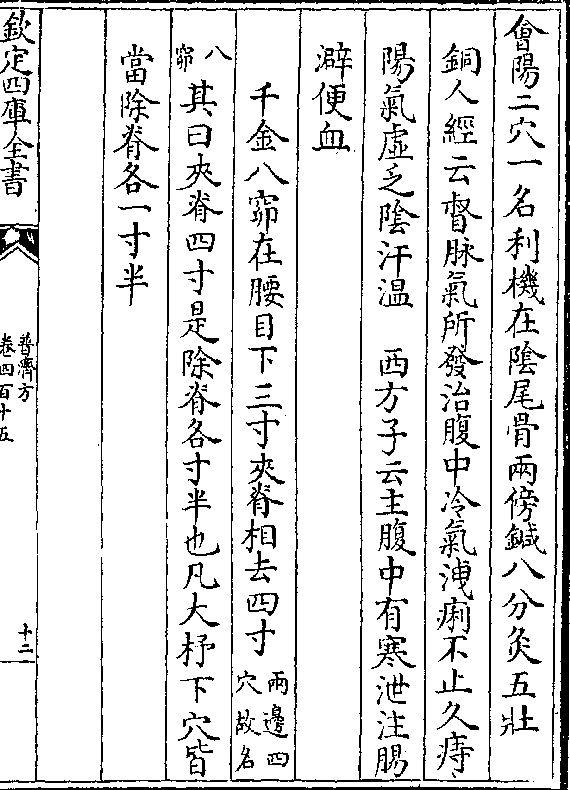 會陽二穴一名利機在陰尾骨兩傍鍼八分灸五壯
銅人經云督脉氣所發治腹中冷氣洩痢不止久痔
陽氣虛乏陰汗温　西方子云主腹中有寒泄注腸
澼便血
千金八窌在腰目下三寸夾脊相去四寸兩邊四穴故名
八窌其曰夾脊四寸是除脊各寸半也凡大杼下穴皆
當除脊各一寸半
欽定四庫全書
普濟方
卷四百十五
十二